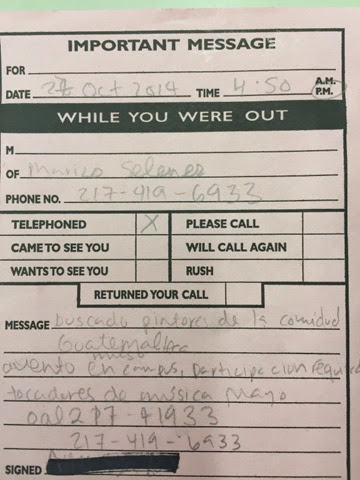 IMPORTANT MESSAGE
FOR
DATE 27 Oct 2014 TIME 4:50 A.M.
P.M.
WHILE YOU WERE OUT
M
OF Marico Selenes
PHONE NO. 217-419-6933
TELEPHONED X PLEASE CALL
CAME TO SEE YOU WILL CALL AGAIN
WANTS TO SEE YOU RUSH
RETURNED YOUR CALL
MESSAGE buscado pintores de la comidud
Guatemalteca
evento en campus, participacion
tocadores de música mayo
217-41933
217-419-6933
SIGNED